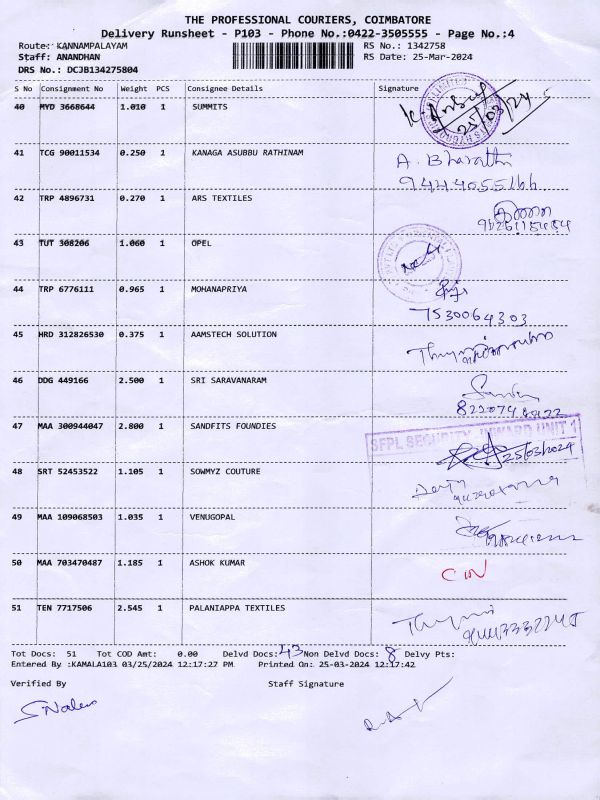 THE PROFESSIONAL COURIERS, COIMBATORE
Delivery Runsheet - P103 - Phone No.:0422-3505555 - Page No.:4
Route: KANNAMPALAYAM RS No.: 1342758
Staff: ANANDHAN RS Date: 25-Mar-2024
DRS No.: DCJB134275804
S No Consignment No Weight PCS Consignee Details Signature
40 MYD 3668644 1.010 1 SUMMITS 25/03/24
41 TCG 90011534 0.250 1 KANAGA ASUBBU RATHINAM A. Bharathi
9444055166
42 TRP 4896731 0.270 1 ARS TEXTILES
43 TUT 308206 1.060 1 OPEL
44 TRP 6776111 0.965 1 MOHANAPRIYA
7530064303
45 HRD 312826530 0.375 1 AAMSTECH SOLUTION
46 DDG 449166 2.500 1 SRI SARAVANARAM
47 MAA 300944047 2.800 1 SANDFITS FOUNDIES SFPL SECURITY INWARD UNIT 1
25/03/2024
48 SRT 52453522 1.105 1 SOWMYZ COUTURE
49 MAA 109068503 1.035 1 VENUGOPAL
50 MAA 703470487 1.185 1 ASHOK KUMAR
51 TEN 7717506 2.545 1 PALANIAPPA TEXTILES
Tot Docs: 51 Tot COD Amt: 0.00 Delvd Docs: 43 Non Delvd Docs: 8 Delvy Pts:
Entered By :KAMALA103 03/25/2024 12:17:27 PM Printed On: 25-03-2024 12:17:42
Verified By Staff Signature